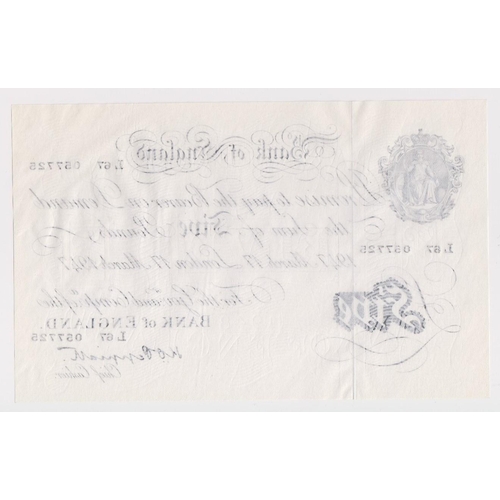 Bank of England
L67 057725
I Promise to pay the Bearer on Demand
the Sum of Five Pounds
L67 057725
1947 March 17 London 17 March 1947
For the Gov.r and Comp.a of the
BANK of ENGLAND.
Five
L67 057725
Chief Cashier